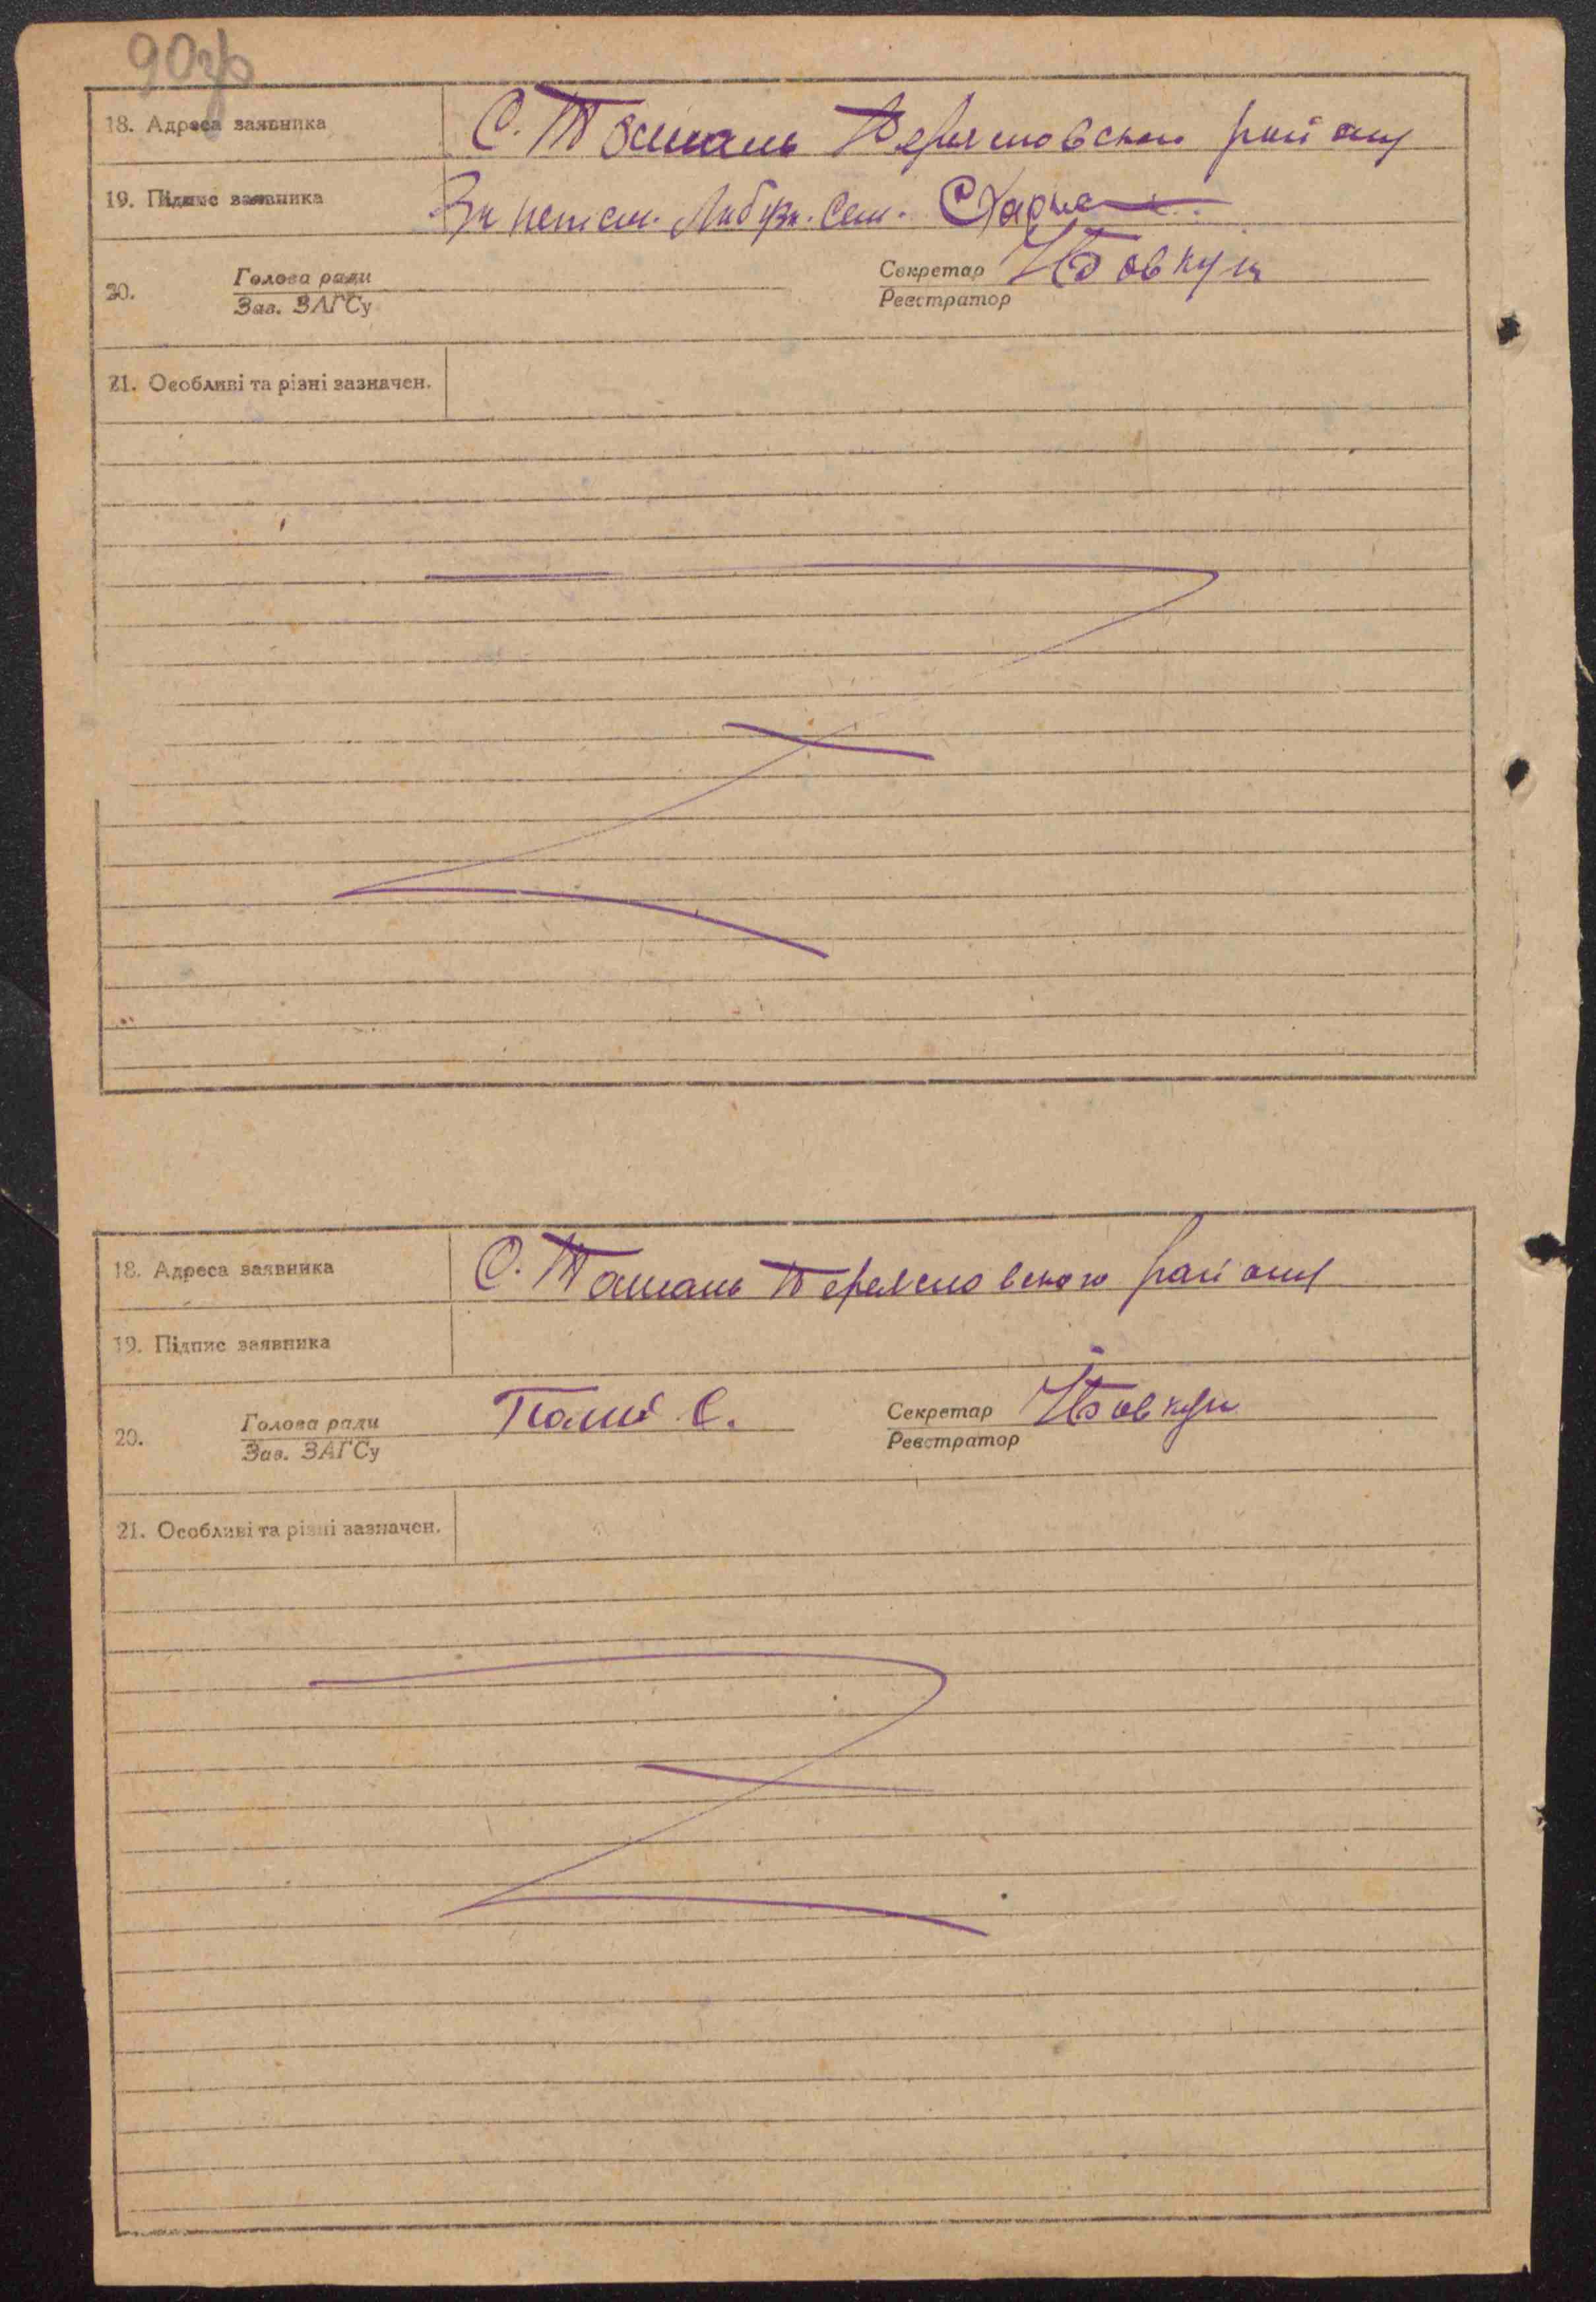 90зв
18. Адреса заявника С. Ташань Переяславського району
19. Підпис заявника За непись. Сем.
20. Голова ради Секретар Ковкун
Зав. ЗАГСу Реєстратор
21. Особливі та різні зазначен.
18. Адреса заявника С. Ташань Переяславського району
19. Підпис заявника
20. Голова ради Палій С. Секретар
Зав. ЗАГСу Реєстратор
21. Особливі та різні зазначен.